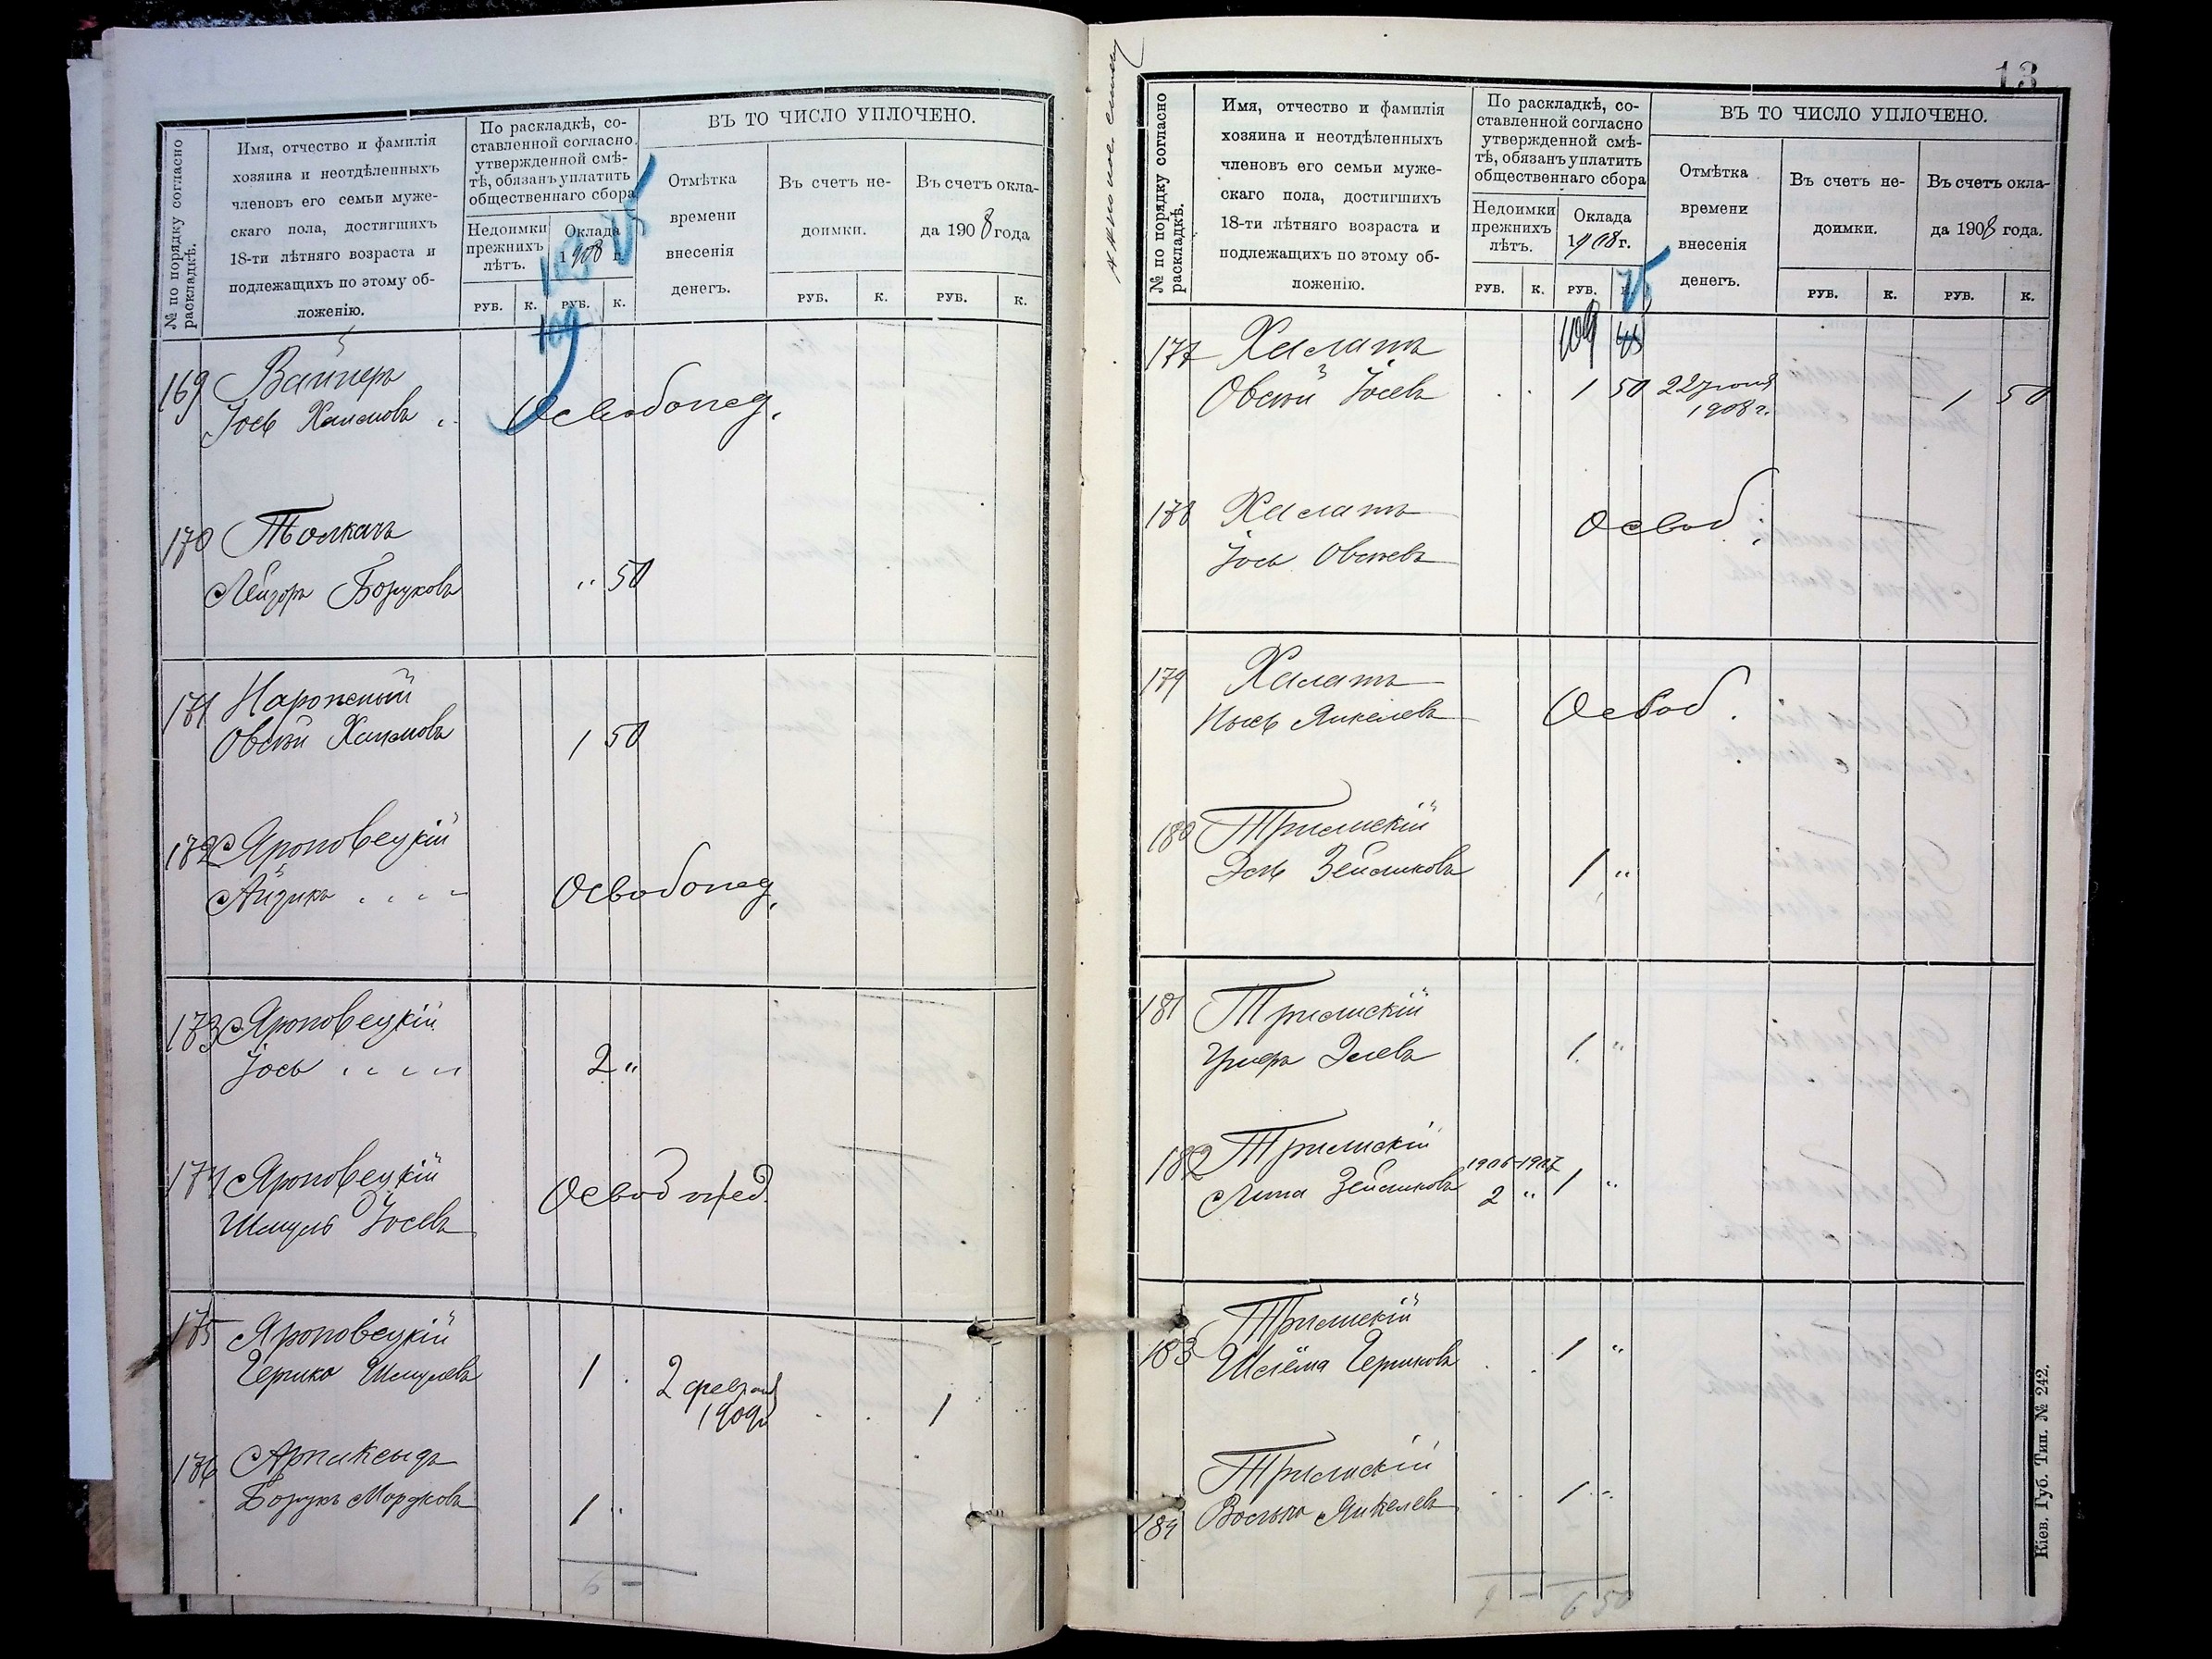 № по порядку согласно
раскладкѣ.
Имя, отчество и фамилія
хозяина и неотдѣленныхъ
членовъ его семьи муже-
скаго пола, достигшихъ
18-ти лѣтняго возраста и
подлежащихъ по этому об-
ложенію.
По раскладкѣ, со-
ставленной согласно
утвержденной смѣ-
тѣ, обязанъ уплатить
общественнаго сбора
Недоимки
прежнихъ
лѣтъ.
Оклада
1908 г.
РУБ. К. РУБ. К.
ВЪ ТО ЧИСЛО УПЛОЧЕНО.
Отмѣтка
времени
внесенія
денегъ.
Въ счетъ не-
доимки.
Въ счетъ окла-
да 1908 года
РУБ. К. РУБ. К.
109
169 Вайнеръ
Іось Хаимовъ Освобожд.
170 Толкачъ
Лейзоръ Боруховъ " 50
171 Нарожный
Овсѣй Хаимовъ 1 50
172 Яроповецкій
Айзикъ Освобожд.
173 Яроповецкій
Іось 2 "
174 Яроповецкій
Шмуль Іосевъ Освобожд.
175 Яроповецкій
Гершко Шмулевъ 1 2 февраля
1909 г. 1
176
Борухъ Мордковъ 1 "
6 –
13
№ по порядку согласно
раскладкѣ.
Имя, отчество и фамилія
хозяина и неотдѣленныхъ
членовъ его семьи муже-
скаго пола, достигшихъ
18-ти лѣтняго возраста и
подлежащихъ по этому об-
ложенію.
По раскладкѣ, со-
ставленной согласно
утвержденной смѣ-
тѣ, обязанъ уплатить
общественнаго сбора
Недоимки
прежнихъ
лѣтъ.
Оклада
1908 г.
РУБ. К. РУБ.
ВЪ ТО ЧИСЛО УПЛОЧЕНО.
Отмѣтка
времени
внесенія
денегъ.
Въ счетъ не-
доимки.
Въ счетъ окла-
да 1908 года.
РУБ. К. РУБ. К.
75
109
177 Халатъ
Овсѣй Іосевъ 1 50 22 іюня
1908 г. 1 50
178 Халатъ
Іось Овсѣевъ Освоб.
179 Халатъ
Янкелевъ Освоб.
180 Трилискій
Эль Зейликовъ 1 "
181 Трилискій
Элевъ 1 "
182 Трилискій 1906-1907
Липа Зейликовъ 2 " 1 "
183 Трилискій
Шлёма Гершковъ 1 "
184 Трилискій
Волько Янкелевъ 1 "
2 – 6 50
Кіев. Губ. Тип. № 242.